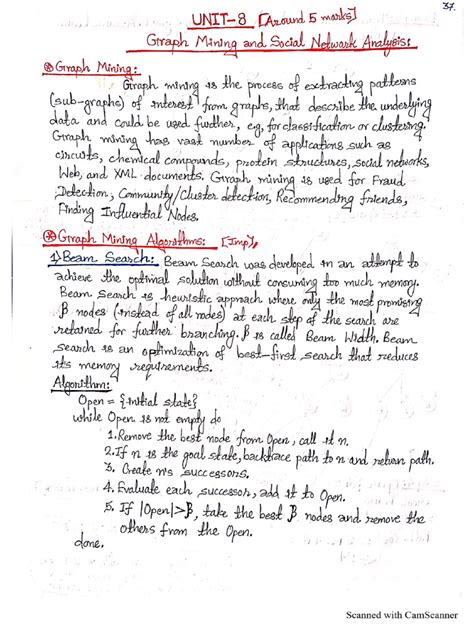 37.
UNIT-8 [Around 5 marks]
Graph Mining and Social Network Analysis:
⊛ Graph Mining:
Graph mining is the process of extracting patterns
(sub-graphs) of interest from graphs, that describe the underlying
data and could be used further, eg, for classification or clustering.
Graph mining has vast number of applications such as
circuits, chemical compounds, protein structures, social networks,
Web, and XML documents. Graph mining is used for Fraud
Detection, Community/Cluster detection, Recommending friends,
Finding Influential Nodes.
⊛ Graph Mining Algorithms: [Imp],
1) Beam Search: Beam Search was developed in an attempt to
achieve the optimal solution without consuming too much memory.
Beam Search is heuristic approach where only the most promising
β nodes (instead of all nodes) at each step of the search are
retained for further branching. β is called Beam Width. Beam
search is an optimization of best-first search that reduces
its memory requirements.
Algorithm:
Open = {initial state}
while Open is not empty do
1. Remove the best node from Open, call it n.
2. If n is the goal state, backtrace path to n and return path.
3. Create n's successors.
4. Evaluate each successor, add it to Open.
5. If |Open| > β, take the best β nodes and remove the
others from the Open.
done.
Scanned with CamScanner